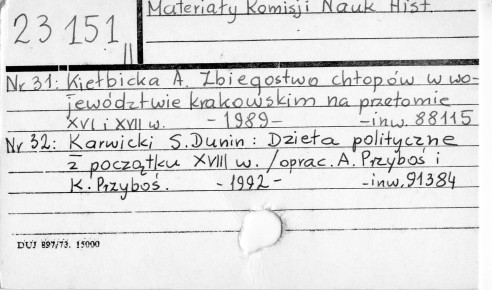 Materiały Komisji Nauk Hist.
23 151
II
Nr 31: Kiełbicka A. Zbiegostwo chłopów w wo-
jewództwie krakowskim na przełomie
XVI i XVII w. - 1989 - - inw. 88115
Nr 32: Karwicki S. Dunin : Dzieła polityczne
z początku XVIII w. / oprac. A. Przyboś i
K. Przyboś. - 1992 - - inw. 91384
DUJ 897/73. 15000